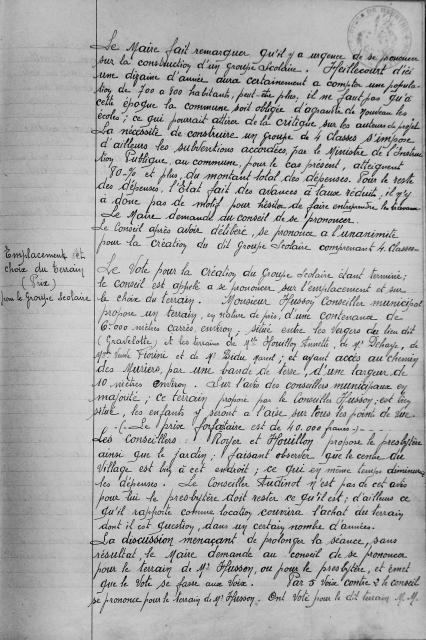 Le Maire fait remarquer qu'il y a urgence de se prononcer
sur la construction d'un groupe Scolaire. Heillecourt d'ici
une dizaine d'année aura certainement a compter une popula-
tion de 700 a 800 habitants, peut-être plus, il ne faut pas qu'à
cette époque la commune soit obligée d'agrandir de nouveau les
écoles ; ce qui pourrait attirer de la critique, sur les auteurs du projet.
La nécessité de construire un groupe de 4 classes s'impose
d'ailleurs les subventions accordées, par le Ministre de l'Instruc-
tion Publique, au commune, pour le cas présent, atteignent
80% et plus, du montant total des dépenses. Pour le reste
des dépenses, l'Etat fait des avances à taux réduit, il n'y
a donc pas de motif pour hésiter de faire entreprendre les travaux
Le Maire demande au conseil de se prononcer.
Le Conseil après avoir délibéré, se prononce a l'unanimité
pour la création du dit groupe Scolaire comprenant 4 classes
Emplacement et
choix du terrain
(Prix)
pour le Groupe Scolaire
Le Vote pour la création du Groupe Scolaire étant terminé ;
le conseil est appelé a se prononcer sur l'emplacement et sur
le choix du terrain. Monsieur Husson Conseiller municipal
propose un terrain, en nature de près, d'une contenance de
6.000 mètres carrés environ, situé entre les vergers du lieu dit
(Gravelotte) et les terrains de Mlle Houillon Annette, de Mr
Mme Veuve et de Mr ; et ayant accès au chemin
des Muriers, par une bande de terre, d'une largeur de
10 mètres environ. Sur l'avis des conseillers municipaux en
majorité ; ce terrain proposé par le Conseiller Husson, est bien
situé, les enfants y seront a l'aise sur tous les points de vue.
(Le prix forfaitaire est de 40.000 francs)
Les conseillers : Royer et Houillon propose le presbytère
ainsi que le jardin ; faisant observer que le centre du
Village est bien à cet endroit ; ce qui en même temps diminuera
les dépenses. Le Conseiller Audinot n'est pas de cet avis
pour lui le presbytère doit rester ce qu'il est ; d'ailleurs ce
qu'il rapporte comme location couvrira l'achat du terrain
dont il est question, dans un certain nombre d'années.
La discussion menaçant de prolonger la séance, sans
résultat, le Maire demande au conseil de se prononcer
pour le terrain de Mr Husson, ou pour le presbytère, et émet
que le Vote se fasse aux Voix. Par 5 voix contre 2 le conseil
se prononce pour le terrain de Mr Husson. Ont Voté pour le dit terrain M.M.